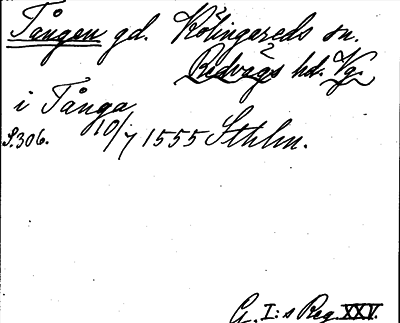 Tången gd. Kölingareds sn.
Redvägs hd. Vg.
i Tånga
S. 306. 10/7 1555 Sthlm.
G. I:s Reg. XXV.